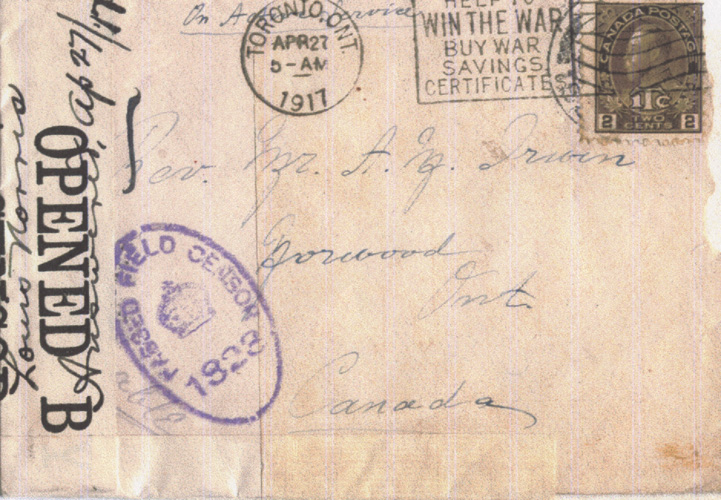 On Active Service
TORONTO, ONT.
APR 27
5 - AM
1917
HELP TO
WIN THE WAR
BUY WAR
SAVINGS
CERTIFICATES
CANADA POSTAGE
1Tc
2 TWO CENTS 2
Rev. Mr. A. Y. Irwin
Norwood
Ont.
Canada
PASSED FIELD CENSOR
1823
OPENED B
Answered, Ap 27/17
Louis Norris